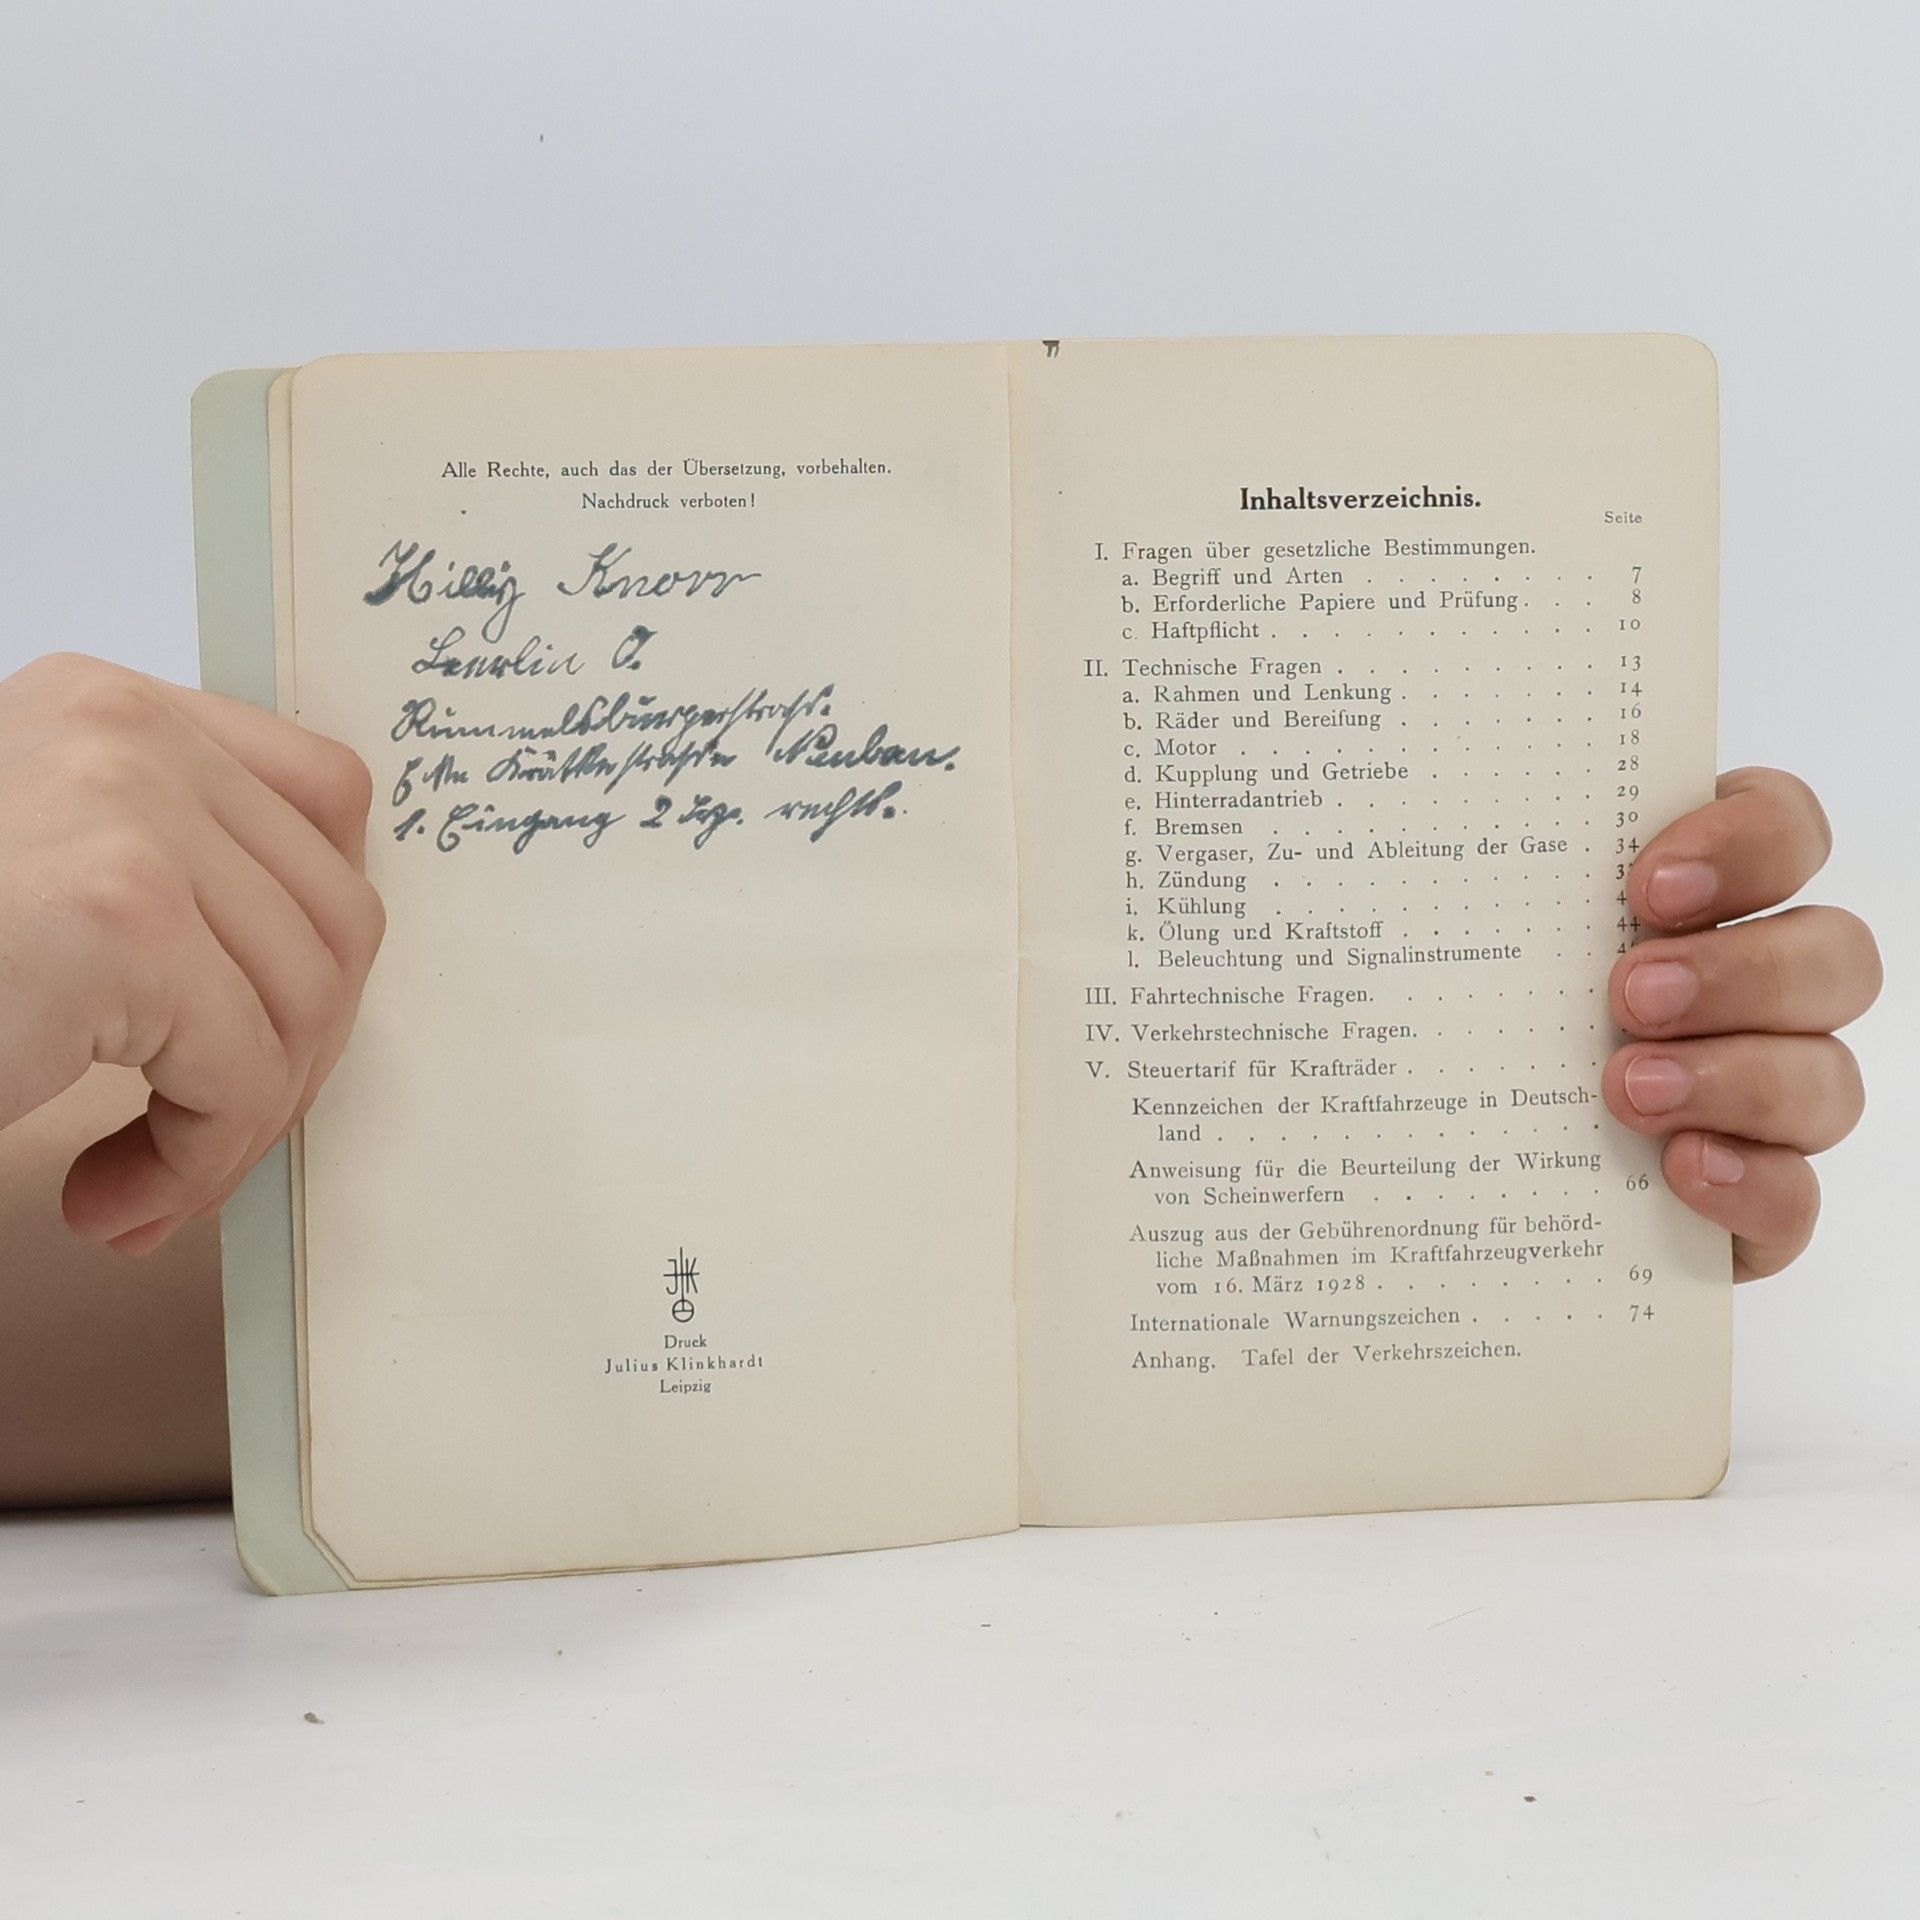 Alle Rechte, auch das der Übersetzung, vorbehalten.
Nachdruck verboten!
Knorr
Berlin O.
Rummelsburgerstraß.
Ecke Krätkestraße Neubau.
1. Eingang 2 Trp. rechts.
JK
Druck
Julius Klinkhardt
Leipzig
Inhaltsverzeichnis.
Seite
I. Fragen über gesetzliche Bestimmungen.
a. Begriff und Arten . . . . . . . . 7
b. Erforderliche Papiere und Prüfung . . . 8
c. Haftpflicht . . . . . . . . . . . 10
II. Technische Fragen . . . . . . . . . 13
a. Rahmen und Lenkung . . . . . . . 14
b. Räder und Bereifung . . . . . . . 16
c. Motor . . . . . . . . . . . . 18
d. Kupplung und Getriebe . . . . . . 28
e. Hinterradantrieb . . . . . . . . . 29
f. Bremsen . . . . . . . . . . . 30
g. Vergaser, Zu- und Ableitung der Gase . 34
h. Zündung . . . . . . . . . . .
i. Kühlung . . . . . . . . . . .
k. Ölung und Kraftstoff . . . . . . . 44
l. Beleuchtung und Signalinstrumente . .
III. Fahrtechnische Fragen. . . . . . . .
IV. Verkehrstechnische Fragen. . . . . . .
V. Steuertarif für Krafträder . . . . . . .
Kennzeichen der Kraftfahrzeuge in Deutsch-
land . . . . . . . . . . . . .
Anweisung für die Beurteilung der Wirkung
von Scheinwerfern . . . . . . . . 66
Auszug aus der Gebührenordnung für behörd-
liche Maßnahmen im Kraftfahrzeugverkehr
vom 16. März 1928 . . . . . . . . 69
Internationale Warnungszeichen . . . . . 74
Anhang. Tafel der Verkehrszeichen.